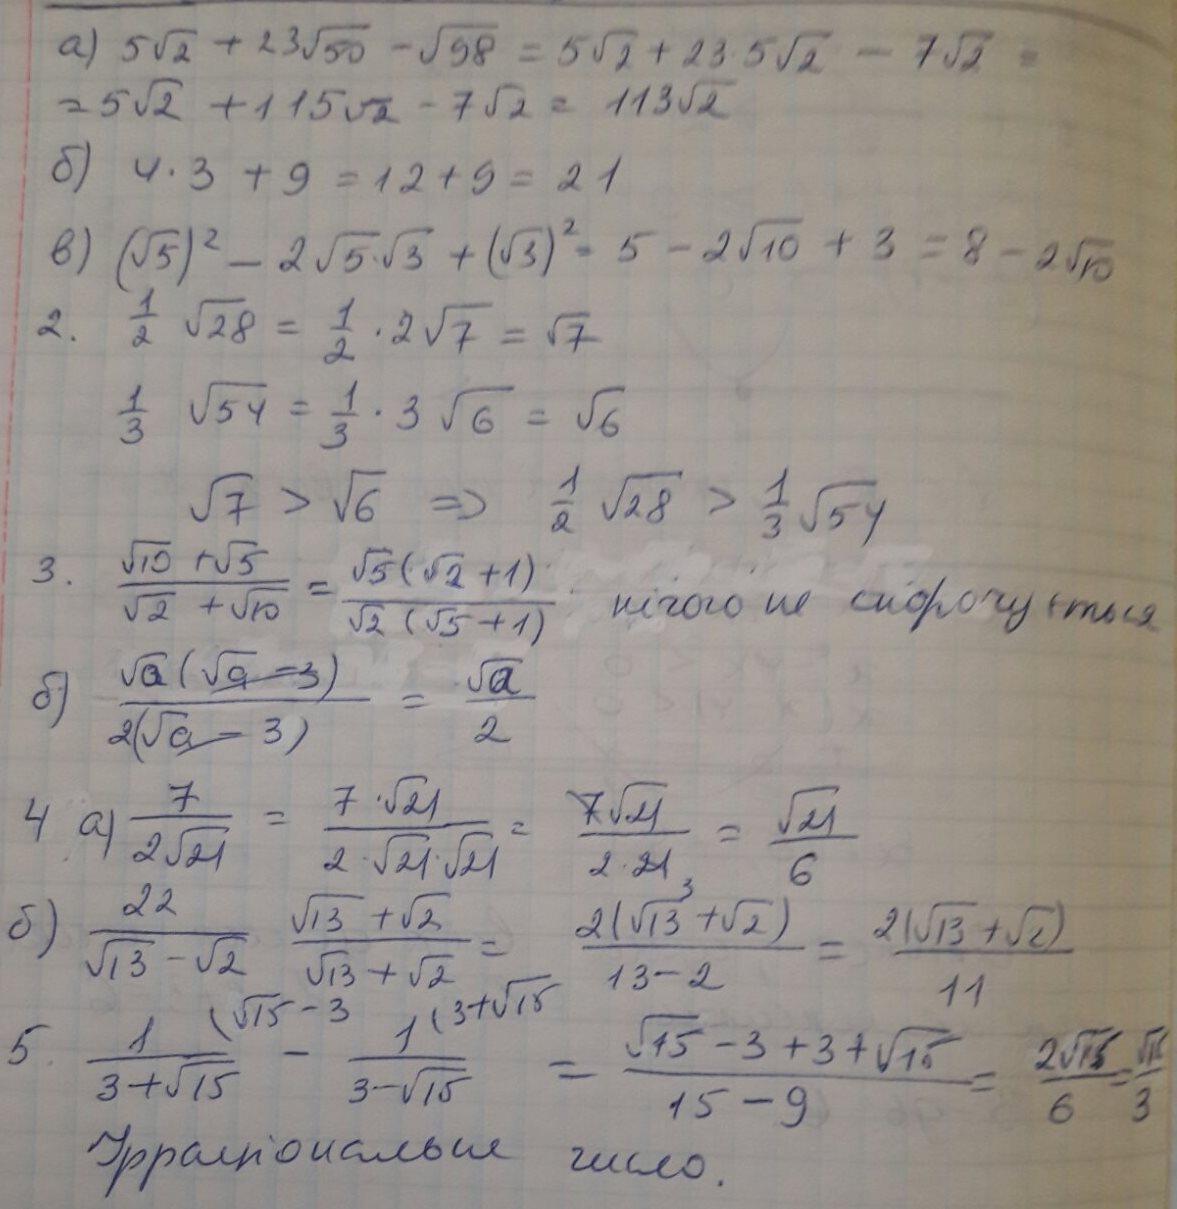 а) 5√2 + 23√50 - √98 = 5√2 + 23·5√2 - 7√2 =
= 5√2 + 115√2 - 7√2 = 113√2
б) 4·3 + 9 = 12 + 9 = 21
в) (√5)² - 2√5·√3 + (√3)² = 5 - 2√10 + 3 = 8 - 2√10
2. 1/2 √28 = 1/2 · 2√7 = √7
1/3 √54 = 1/3 · 3√6 = √6
√7 > √6 => 1/2 √28 > 1/3 √54
3. (√10 + √5)/(√2 + √10) = √5(√2 + 1)/√2(√5 + 1) нічого не скорочується
б) √a(√a - 3)/2(√a - 3) = √a/2
4 а) 7/2√21 = 7·√21/2·√21·√21 = 7√21/2·21 3 = √21/6
б) 22/(√13 - √2) (√13 + √2)/(√13 + √2) = 2(√13 + √2)/(13 - 2) = 2(√13 + √2)/11
5. 1(√15 - 3/(3 + √15) - 1(3 + √15/(3 - √15) = (√15 - 3 + 3 + √15)/(15 - 9) = 2√15/6 = √15/3
Ірраціональне число.